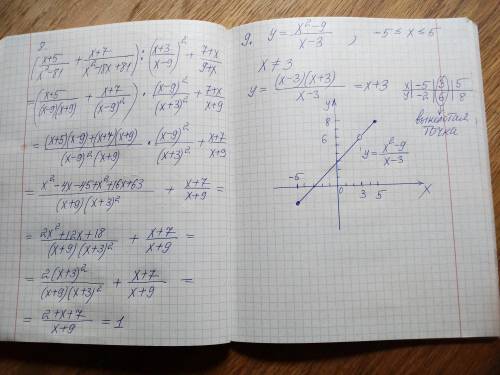 2.
(x+5/x²-81 + x+7/x²-18x+81) : (x+3/x-9)² + 7+x/9+x
= (x+5/(x-9)(x+9) + x+7/(x-9)²) · (x-9)²/(x+3)² + x+7/x+9
= (x+5)(x-9)+(x+7)(x+9)/(x-9)²(x+9) · (x-9)²/(x+3)² + x+7/x+9
= x²-4x-45+x²+16x+63/(x+9)(x+3)² + x+7/x+9 =
= 2x²+12x+18/(x+9)(x+3)² + x+7/x+9 =
= 2(x+3)²/(x+9)(x+3)² + x+7/x+9 =
= 2+x+7/x+9 = 1
9. y = x²-9/x-3 , -5 ≤ x ≤ 5
x ≠ 3
y = (x-3)(x+3)/x-3 = x+3
x | -5 | 3 | 5
y | -2 | 6 | 8
выколотая
точка
y
8
6
y = x²-9/x-3
-5
0
3
5
x